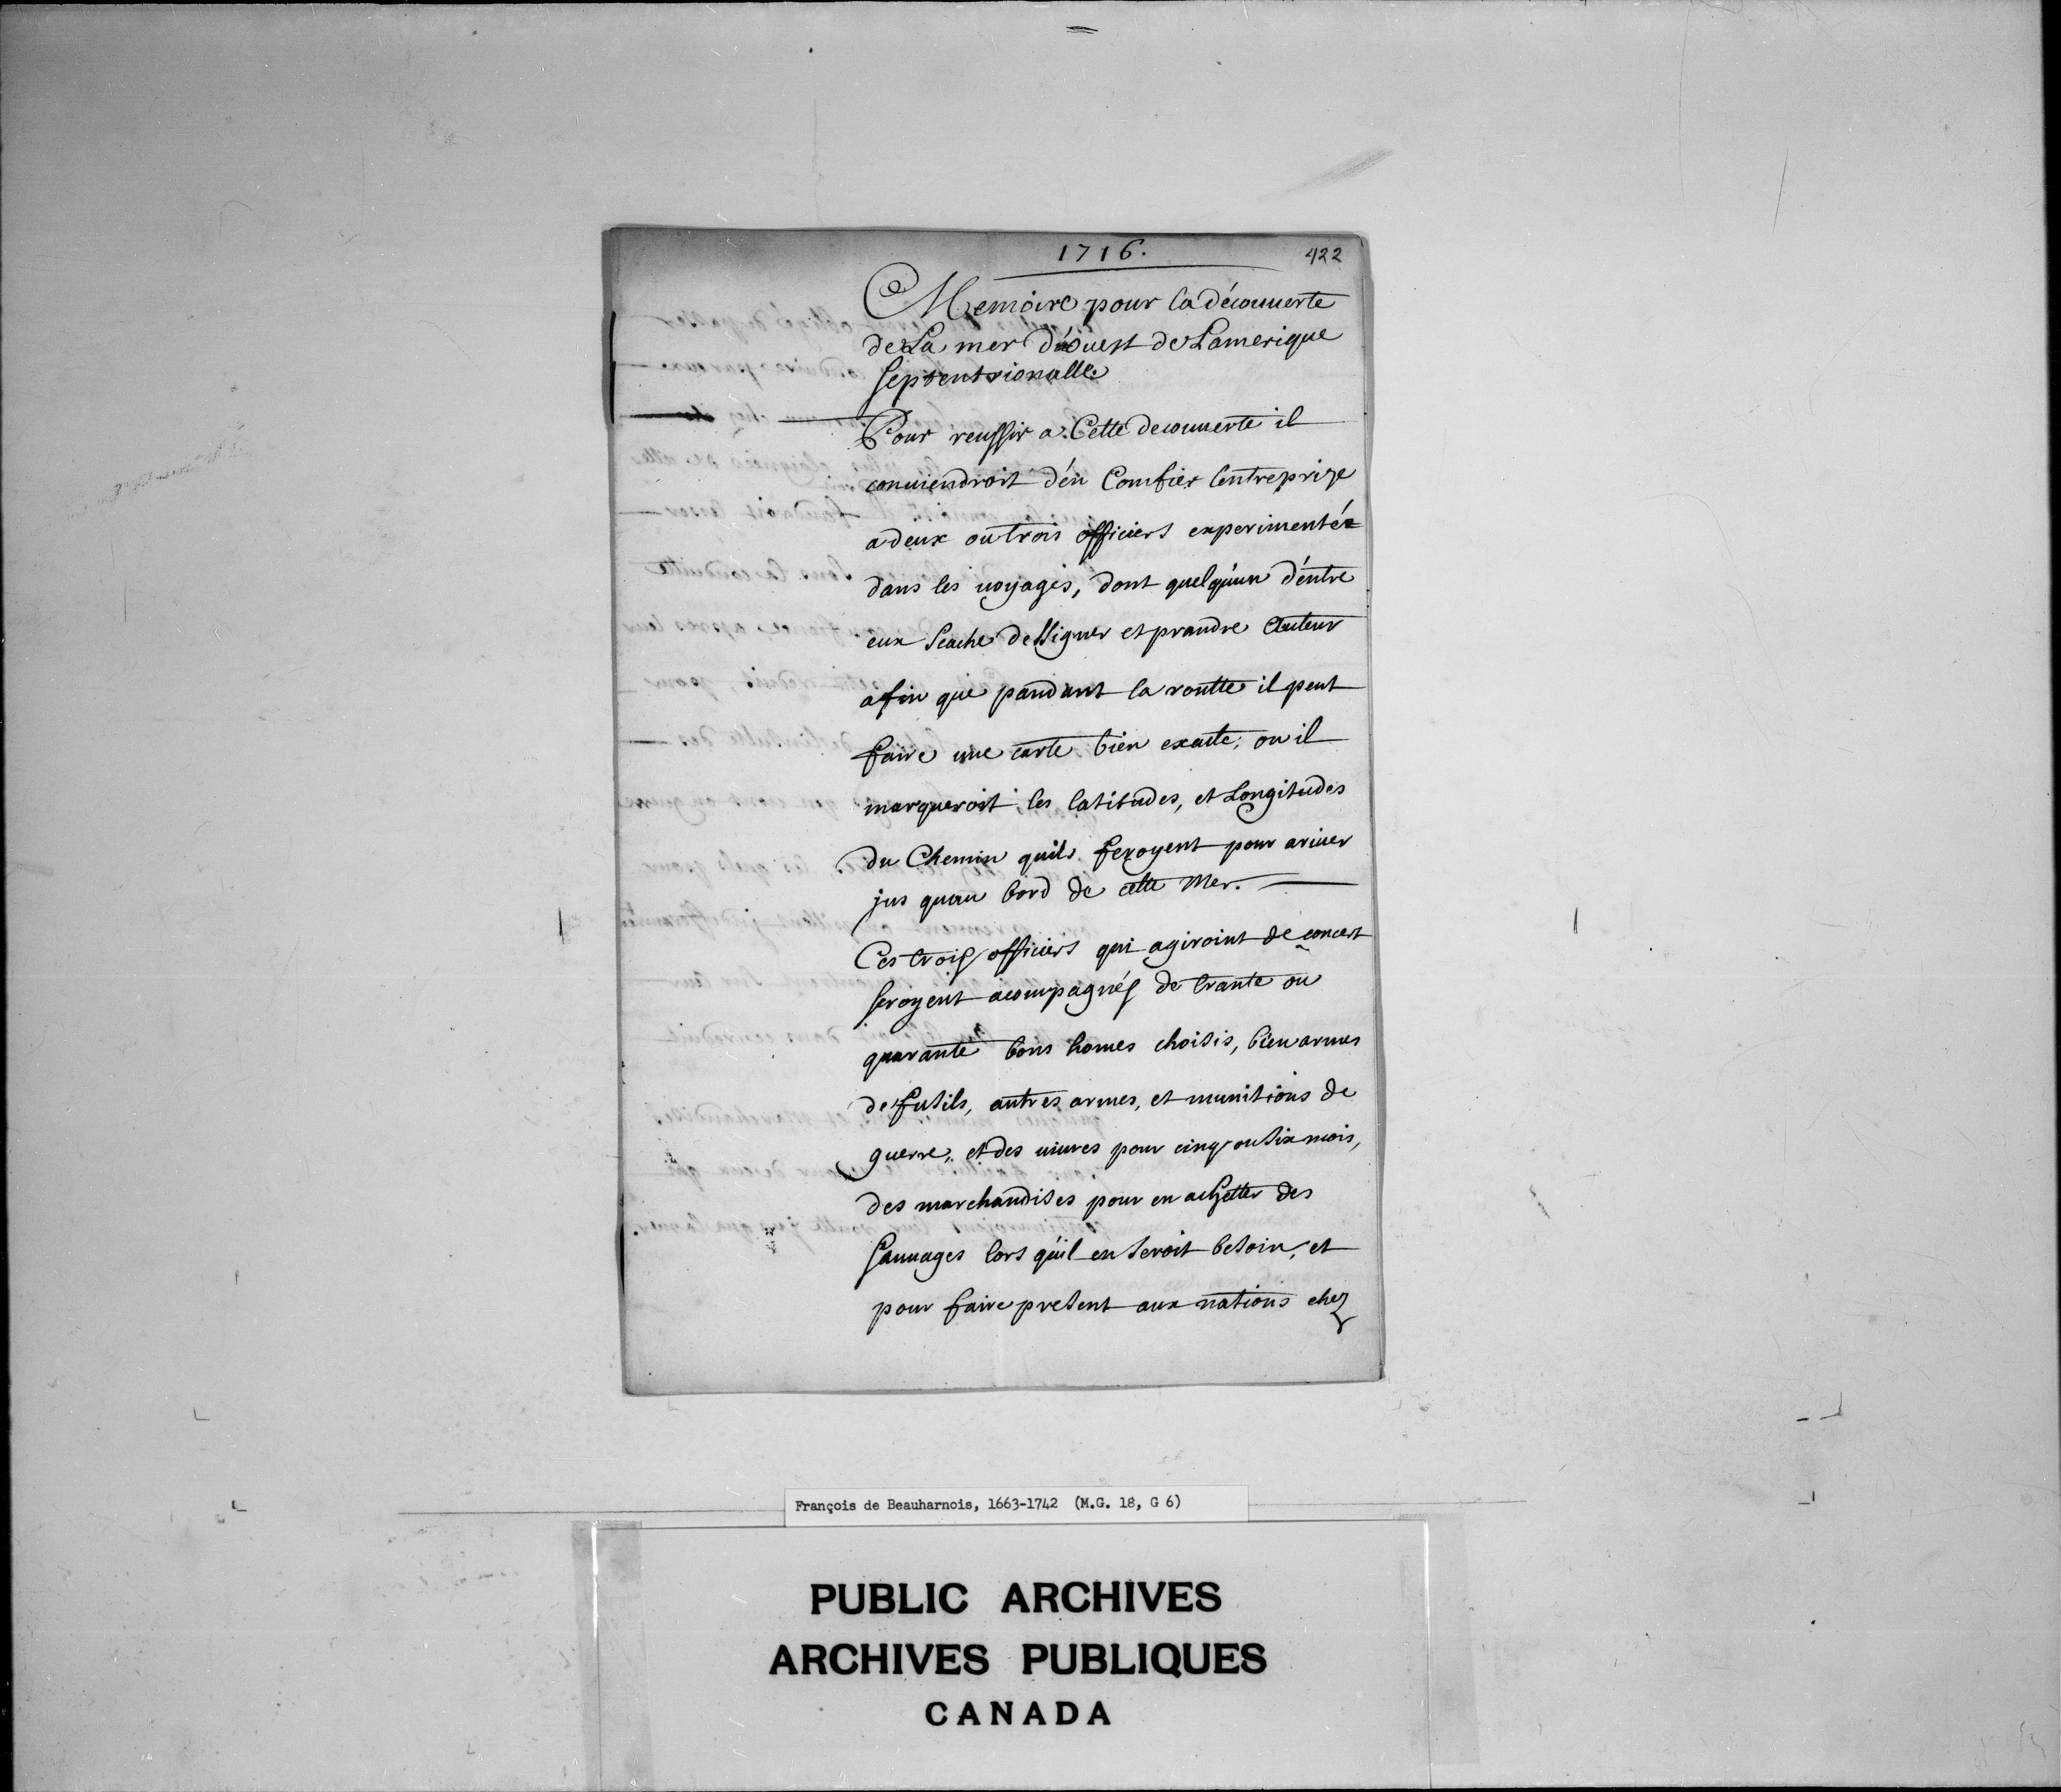 1716.
422
Memoire pour la découuerte
de La mer d'ouest de Lamerique
septentrionalle
Pour reussir a Cette decouuerte il
conuiendroit d'en Comfier lentreprize
a deux ou trois officiers experimentéz
dans les uoyages, dont quelqu'un d'entre
eux scache dessigner et prandre auteur
afin que pandant la routte il peut
faire une carte bien exacte, ou il
marqueroit les latitudes, et Longitudes
du Chemin quils feroyent pour ariuer
jus quau bord de cette Mer.
Ces trois officiers qui agiroint de concert
seroyent acompagnés de trante ou
quarante bons homes choisis, bien armes
de fusils, autres armes, et munitions de
guerre, et des uiures pour cinq ou six mois,
des marchandises pour en achetter des
sauuages lors qu'il en seroit besoin, et
pour faire present aux nations chez
François de Beauharnois, 1663-1742 (M.G. 18, G 6)
PUBLIC ARCHIVES
ARCHIVES PUBLIQUES
CANADA